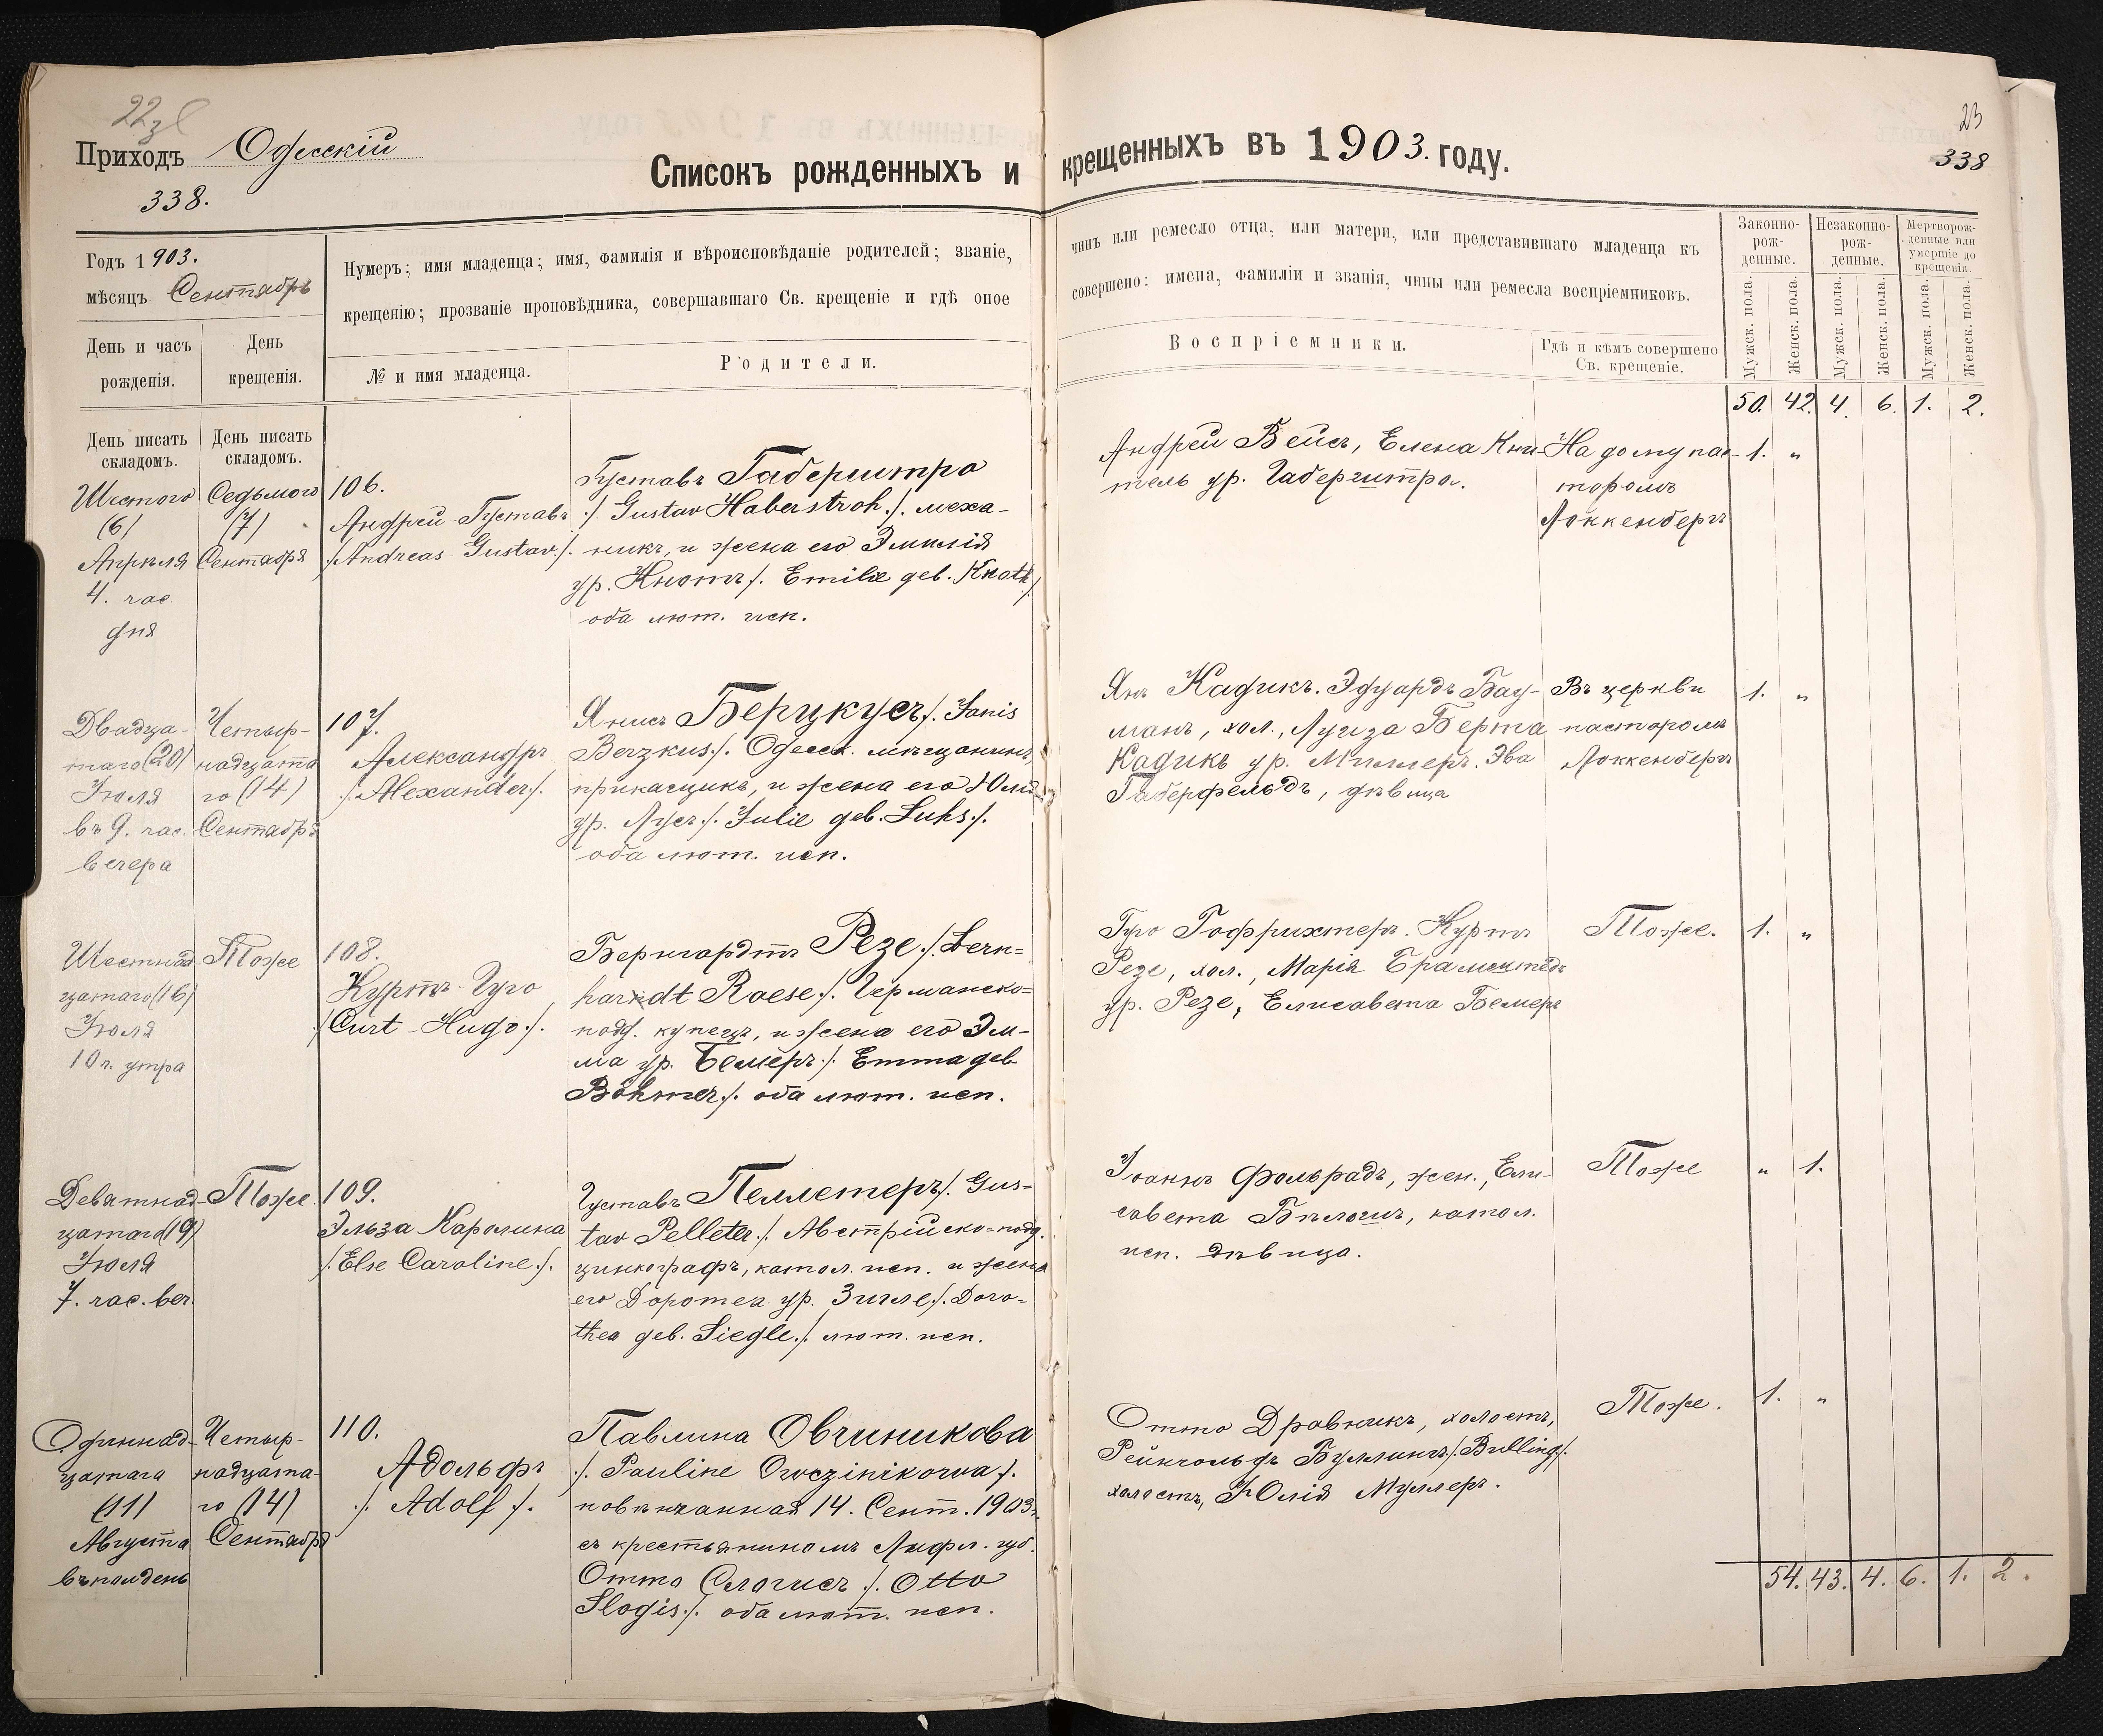 22
Приходъ Одесскій
338.
Списокъ рожденныхъ и крещенныхъ въ 1903. году.
23
338
Годъ 1903.
мѣсяцъ Сентябрь
День и часъ рожденія.
День крещенія.
Нумеръ; имя младенца; имя, фамилія и вѣроисповѣданіе родителей; званіе, чинъ или ремесло отца, или матери, или представившаго младенца къ
крещенію; прозваніе проповѣдника, совершавшаго Св. крещеніе и гдѣ оное совершено; имена, фамиліи и званія, чины или ремесла воспріемниковъ.
№ и имя младенца.
Родители.
Воспріемники.
Гдѣ и кѣмъ совершено
Св. крещеніе.
Законно-
рож-
денные.
Незаконно-
рож-
денные.
Мертворож-
денные или
умершіе до
крещенія.
Мужск. пола.
Женск. пола.
Мужск. пола.
Женск. пола.
Мужск. пола.
Женск. пола.
50. 42. 4. 6. 1. 2.
День писать
складомъ.
День писать
складомъ.
Шестого
(6)
Апрѣля
4. час
дня
Седьмого
(7)
Сентября
106.
Андрей-Густавъ
./Andreas-Gustav./.
Густавъ Габерштро
./ Gustav Haberstroh./. меха-
никъ, и жена его Эмилія
ур. Кнотъ/. Emilie geb. Knoth./
оба лют. исп.
Андрей Вейсъ, Елена Кни-
тель ур. Габерштро.
На дому пас-
торомъ
Локкенбергъ
1. "
Двадца-
таго (20)
Іюля
въ 9. час.
вечера
Четыр-
надцата
го (14)
Сентябрь
107.
Александръ
./Alexander./.
Янисъ Берцкусъ/. Janis
Berzkus./. Одесск. мѣщанинъ,
прикащикъ, и жена его Юлія
ур. Лусъ./. Julie geb. Luhs./.
оба лют. исп.
Янъ Кадикъ. Эдуардъ Бау-
манъ, хол., Луиза Берта
Кадикъ ур. Миллеръ. Эва
Габерфельдъ, дѣвица
Въ церкви
пасторомъ
Локкенбергъ
1. "
Шестнад-
цатаго (16)
Іюля
10 ч. утра
Тоже
108.
Куртъ-Гуго
/Curt-Hugo./.
Бернгардтъ Резе./. Bern=
hardt Roese./. Германско=
подд. купецъ, и жена его Эм-
ма ур. Бемеръ./. Emma geb.
Böhmer./. оба лют. исп.
Гуго Гофрихтеръ. Куртъ
Резе, хол., Марія Брамштедъ
ур. Резе, Елисавета Бемеръ
Тоже.
1. "
Девятнад-
цатаго (19)
Іюля
7. час. веч.
Тоже.
109.
Эльза Каролина
/.Else Caroline./.
Густавъ Пеллетеръ/. Gus=
tav Pelleter./. Австрійско=подд.
цинкографъ, катол. исп. и жена
его Доротея ур. Зигле/. Doro=
thea geb. Siegle./. лют. исп.
Іоаннъ Фольрадъ, жен., Ели-
савета Бѣлогшъ, катол.
исп. дѣвица.
Тоже
" 1.
Одиннад-
цатаго
(11)
Августа
въ полдень
Четыр-
надцата-
го (14)
Сентября
110.
Адольфъ
./. Adolf./.
Павлина Овчиникова
./. Pauline Owczinikowa./.
повѣнчанная 14. Сент. 1903.
съ крестьяниномъ Лифл. губ.
Отто Слогисъ./. Otto
Slogis./. оба лют. исп.
Отто Дравникъ, холостъ,
Рейнгольдъ Буллингъ/. Bulling/.
холостъ, Юлія Муллеръ.
Тоже.
1. "
54. 43. 4. 6. 1. 2.